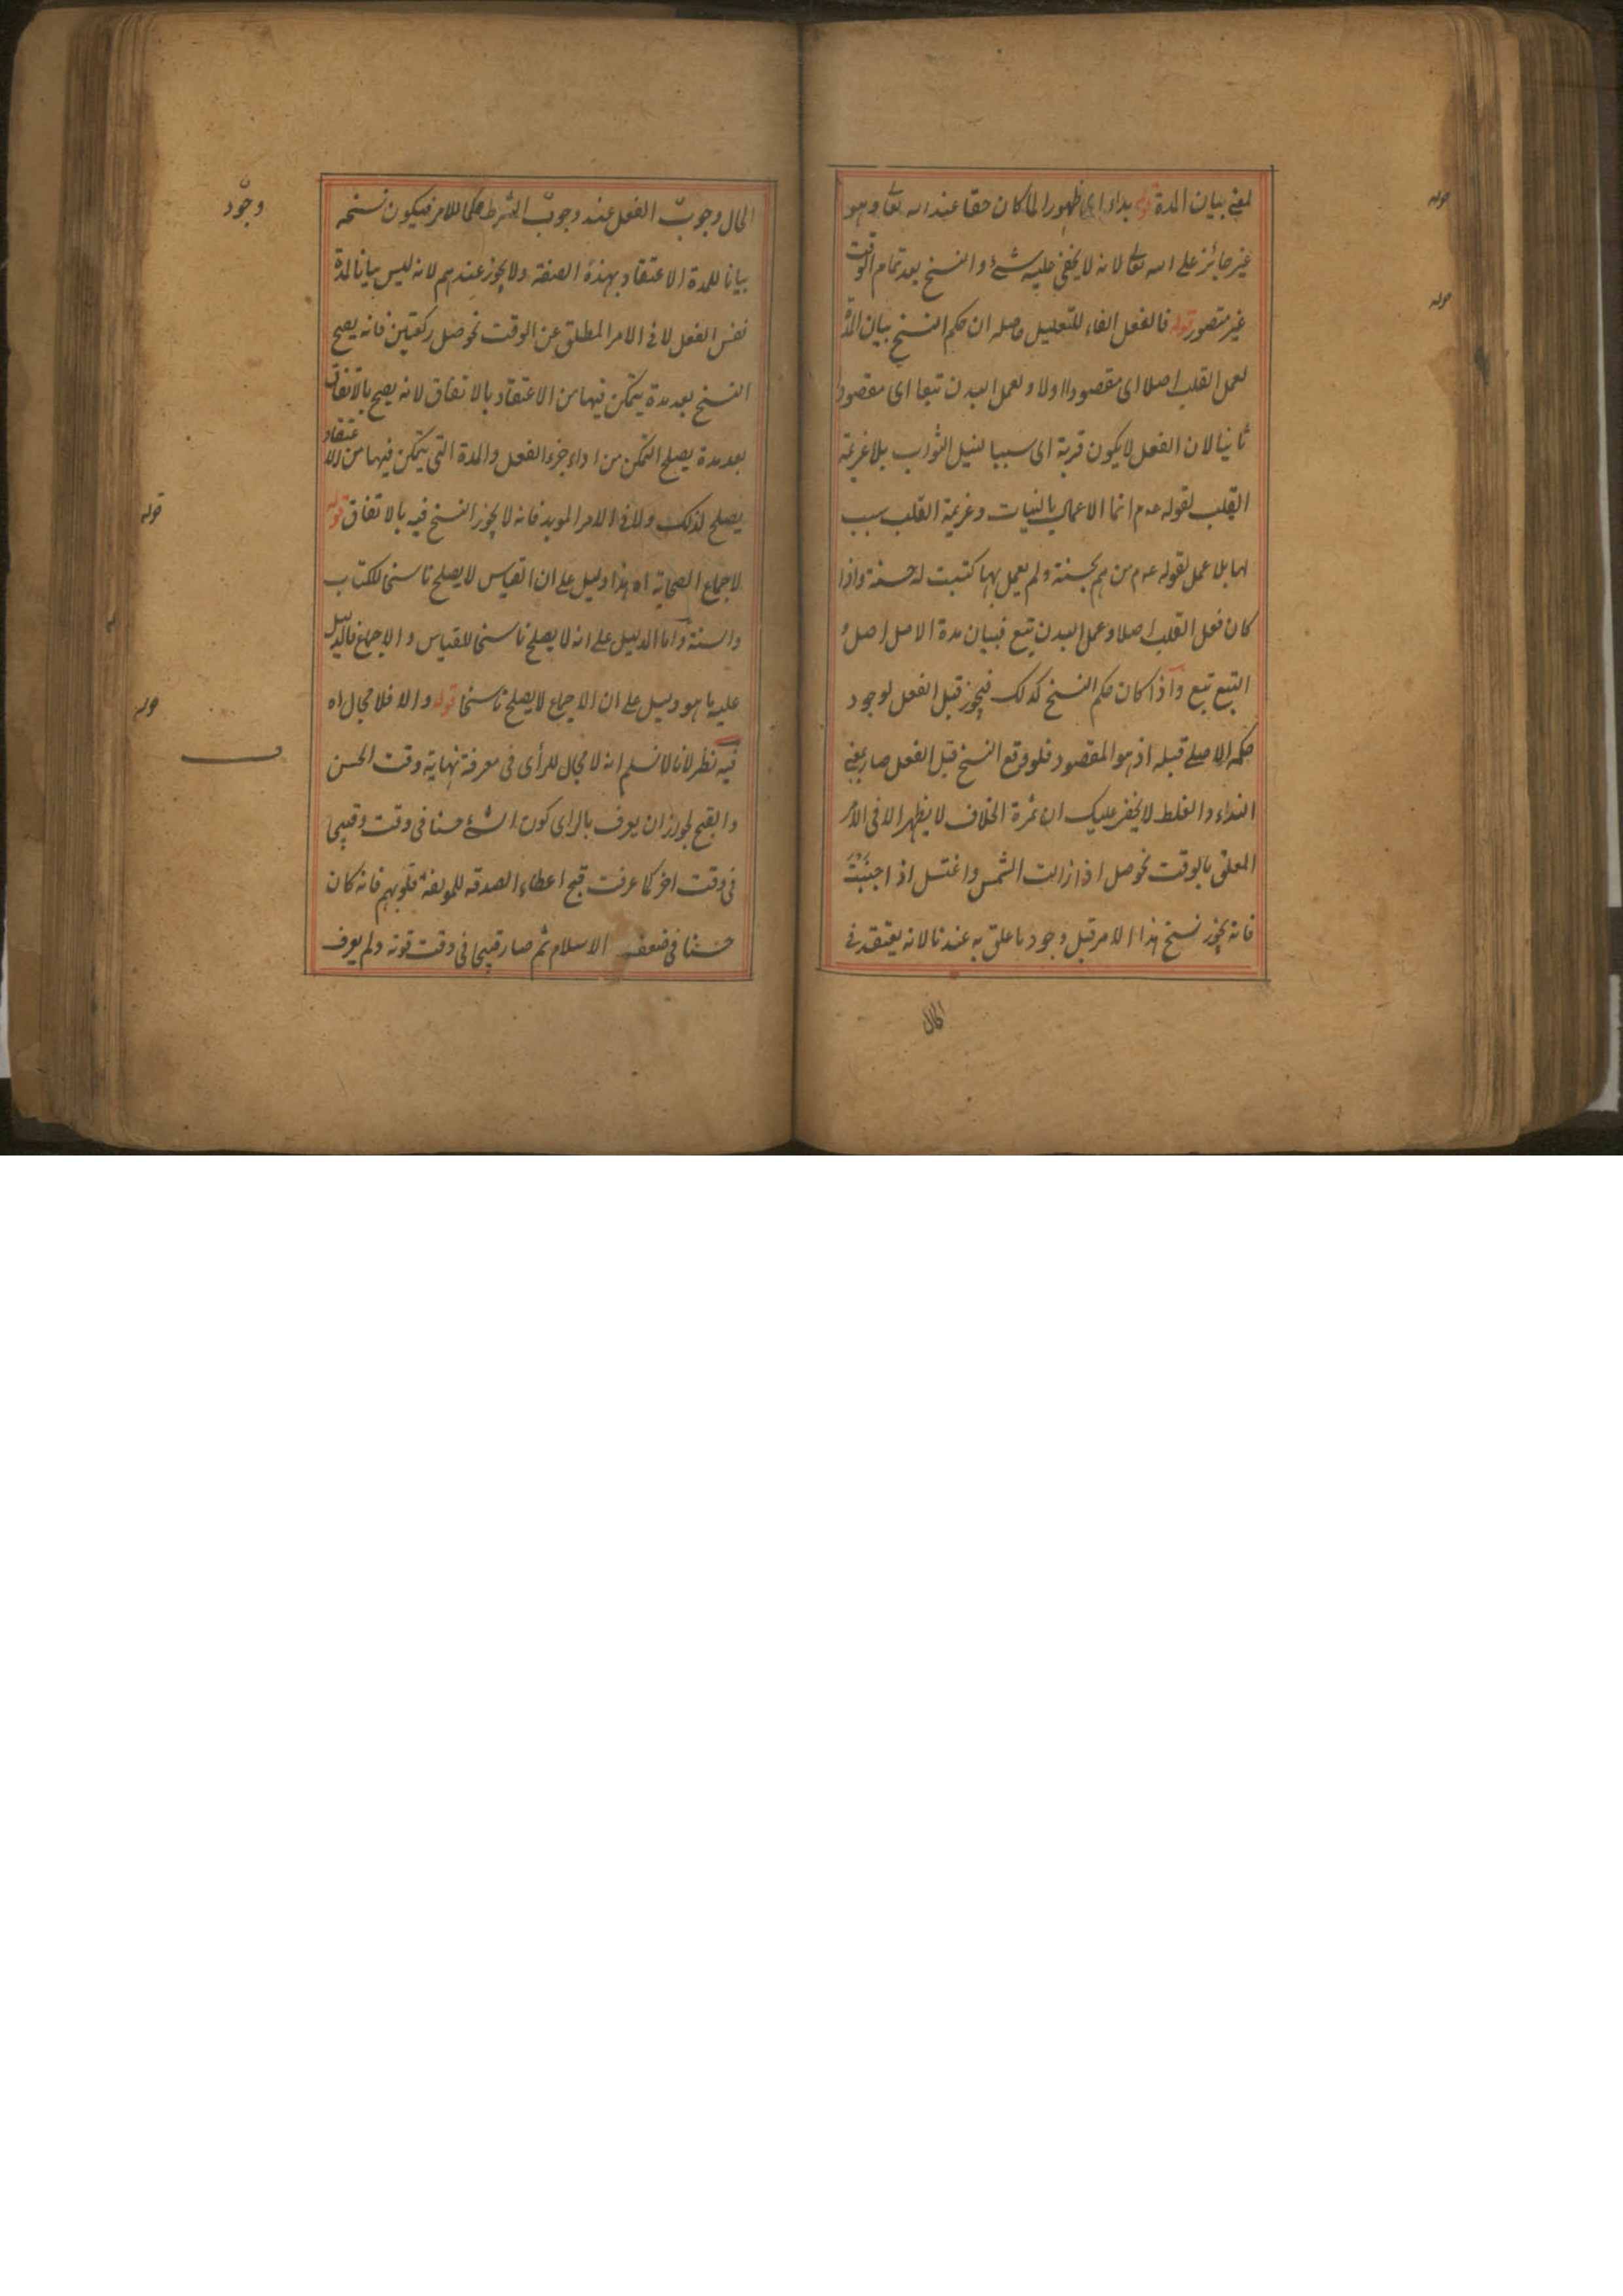 لمعنى بيان المدة قوله بداء اى ظهورا لما كان حقا عند الله تعالى وهو
غير جائز على الله تعالى لانه لا يخفى عليه شئ والنسخ بعد تمام الوقت
غير متصور قوله فالفعل الفاء للتعليل حاصله ان حكم النسخ بيان المدة
لعمل القلب اصلا اى مقصودا اولا ولعمل البدن تبعا اى مقصودا
ثانيا لان الفعل لا يكون قربة اى سببا لنيل الثواب بلا عزيمة
القلب لقوله عم انما الاعمال بالنيات وعزيمة القلب سبب
لها بلا عمل لقوله عم من هم بحسنة ولم يعمل بها كتبت له حسنة واذا
كان فعل القلب اصلا وعمل البدن تبع فبيان مدة الاصل اصل و
التبع تبع واذا كان حكم النسخ كذلك فيجوز قبل الفعل لوجود
حكمه الاصلى قبله اذ هو المقصود فلو وقع النسخ قبل الفعل صار بمعنى
البداء والغلط لا يخفى عليك ان ثمرة الخلاف لا يظهر الا فى الامر
المعلق بالوقت نحو صل اذا زالت الشمس واغتسل اذا اجنبت
فانه يجوز نسخ هذا الامر قبل وجود ما علق به عندنا لانه يعتقد فى
الحال
قوله
قوله
الحال وجوب الفعل عند وجوب الشرط حكما للامر فيكون نسخه
وجود
بيانا للمدة الاعتقاد بهذه الصفة ولا يجوز عندهم لانه ليس بيانا لمدة
نفس الفعل لا فى الامر المطلق عن الوقت نحو صل ركعتين فانه يصح
النسخ بعد مدة يتمكن فيها من الاعتقاد بالاتفاق لانه يصح بالاتفاق
بعد مدة يصلح التمكن من اداء جزء الفعل والمدة التى يتمكن فيها من الاعتقاد
يصلح لذلك ولا فى الامر الموبد فانه لا يجوز النسخ فيه بالاتفاق قوله
قوله
لاجماع الصحابة اه هذا دليل على ان القياس لا يصلح ناسخا للكتاب
والسنة واما الدليل على انه لا يصلح ناسخا للقياس والاجماع فالدليل
عليه ما هو دليل على ان الاجماع لا يصلح ناسخا قوله والا فلا مجال اه
قوله
فيه نظر لانا لا نسلم انه لا مجال للرأى فى معرفة نهاية وقت الحسن
والقبح لجواز ان يعرف بالراى كون الشئ حسنا فى وقت وقبيحا
فى وقت اخر كما عرفت قبح اعطاء الصدقه للمولفة قلوبهم فانه كان
حسنا فى ضعف الاسلام ثم صار قبيحا فى وقت قوته ولم يعرف